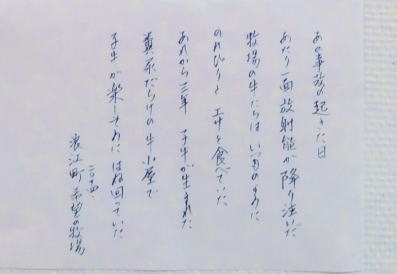 あの事故の起きた日
あたり一面放射能が降り注いだ
牧場の牛たちはいつものように
のんびりと エサを食べていた
あれから三年 子牛が生まれた
糞尿だらけの牛小屋で
子牛が楽しそうに はね回っていた
二〇一四、
浪江町 希望の牧場